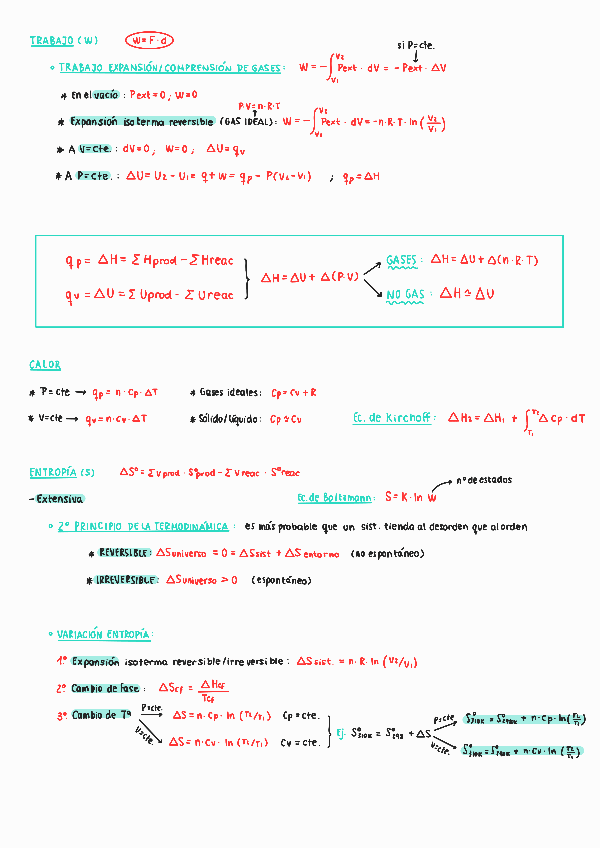 TRABAJO (W) W = F · d
si P=cte.
° TRABAJO EXPANSIÓN/COMPRENSIÓN DE GASES: W = -∫V1V2 Pext · dV = - Pext · ΔV
* En el vacío : Pext = 0 ; W = 0
P·V = n·R·T
* Expansión isoterma reversible (GAS IDEAL): W = -∫V1V2 Pext · dV = -n·R·T · ln (V2/V1)
* A V=cte. : dV = 0 ; W = 0 ; ΔU = qv
* A P=cte. : ΔU = U2 - U1 = q + W = qp - P(V2-V1) ; qp = ΔH
qp = ΔH = Σ Hprod - Σ Hreac
qv = ΔU = Σ Uprod - Σ Ureac
ΔH = ΔU + Δ(P·V)
GASES : ΔH = ΔU + Δ(n·R·T)
NO GAS : ΔH ≃ ΔU
CALOR
* P=cte → qp = n · Cp · ΔT * Gases ideales: Cp = Cv + R
* V=cte → qv = n · Cv · ΔT * Sólido/líquido: Cp ≃ Cv Ec. de Kirchoff: ΔH2 = ΔH1 + ∫T1T2 ΔCp · dT
ENTROPÍA (S) ΔS° = Σ νprod · S°prod - Σ νreac · S°reac
nº de estados
- Extensiva Ec. de Boltzmann: S = K · ln W
° 2º PRINCIPIO DE LA TERMODINÁMICA : es más probable que un sist. tienda al desorden que al orden
* REVERSIBLE: ΔSuniverso = 0 = ΔSsist + ΔSentorno (no espontáneo)
* IRREVERSIBLE: ΔSuniverso > 0 (espontáneo)
° VARIACIÓN ENTROPÍA:
1º Expansión isoterma reversible/irreversible : ΔSsist. = n · R · ln (V2/V1)
2º Cambio de fase : ΔScf = ΔHcf/Tcf
3º Cambio de Tª P=cte. ΔS = n·Cp · ln (T2/T1) Cp = cte.
V=cte. ΔS = n·Cv · ln (T2/T1) Cv = cte.
Ej. S°310K = S°298 + ΔS
P=cte. S°310K = S°298K + n·Cp·ln(T2/T1)
V=cte. S°310K = S°298K + n·Cv·ln (T2/T1)